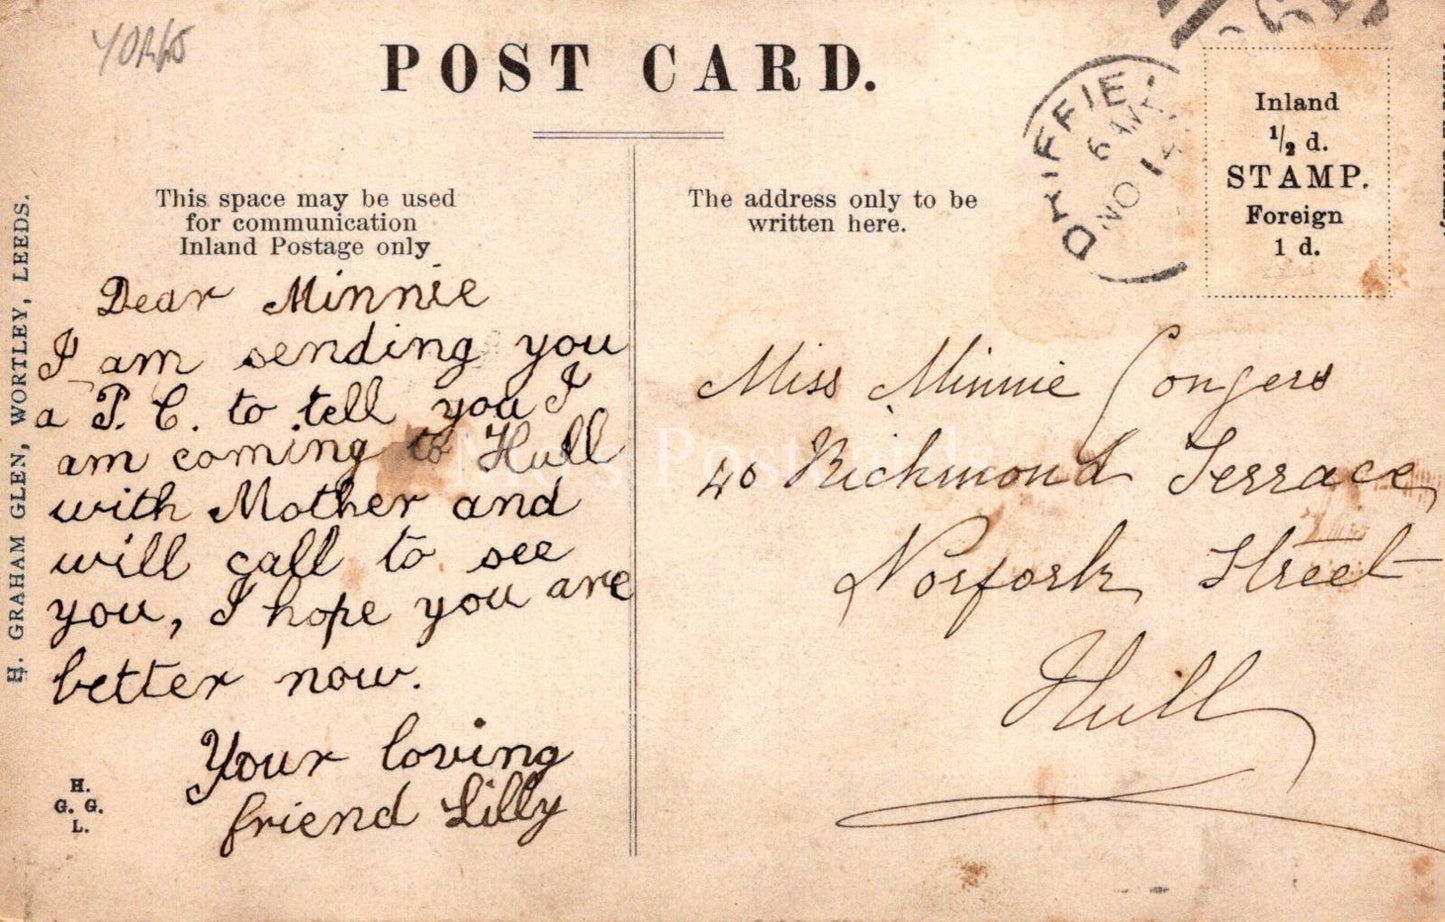 YORKS
POST CARD.
This space may be used
for communication
Inland Postage only
The address only to be
written here.
DRIFFIE
6 AM
NO 14
Inland
½ d.
STAMP.
Foreign
1 d.
H. GRAHAM GLEN, WORTLEY, LEEDS.
Dear Minnie
I am sending you
a P. C. to tell you I
am coming to Hull
with Mother and
will call to see
you, I hope you are
better now.
Your loving
friend Lilly
H.
G. G.
L.
Miss Minnie Congers
40 Richmond Terrace
Norfork Street
Hull
Mo's Postcards